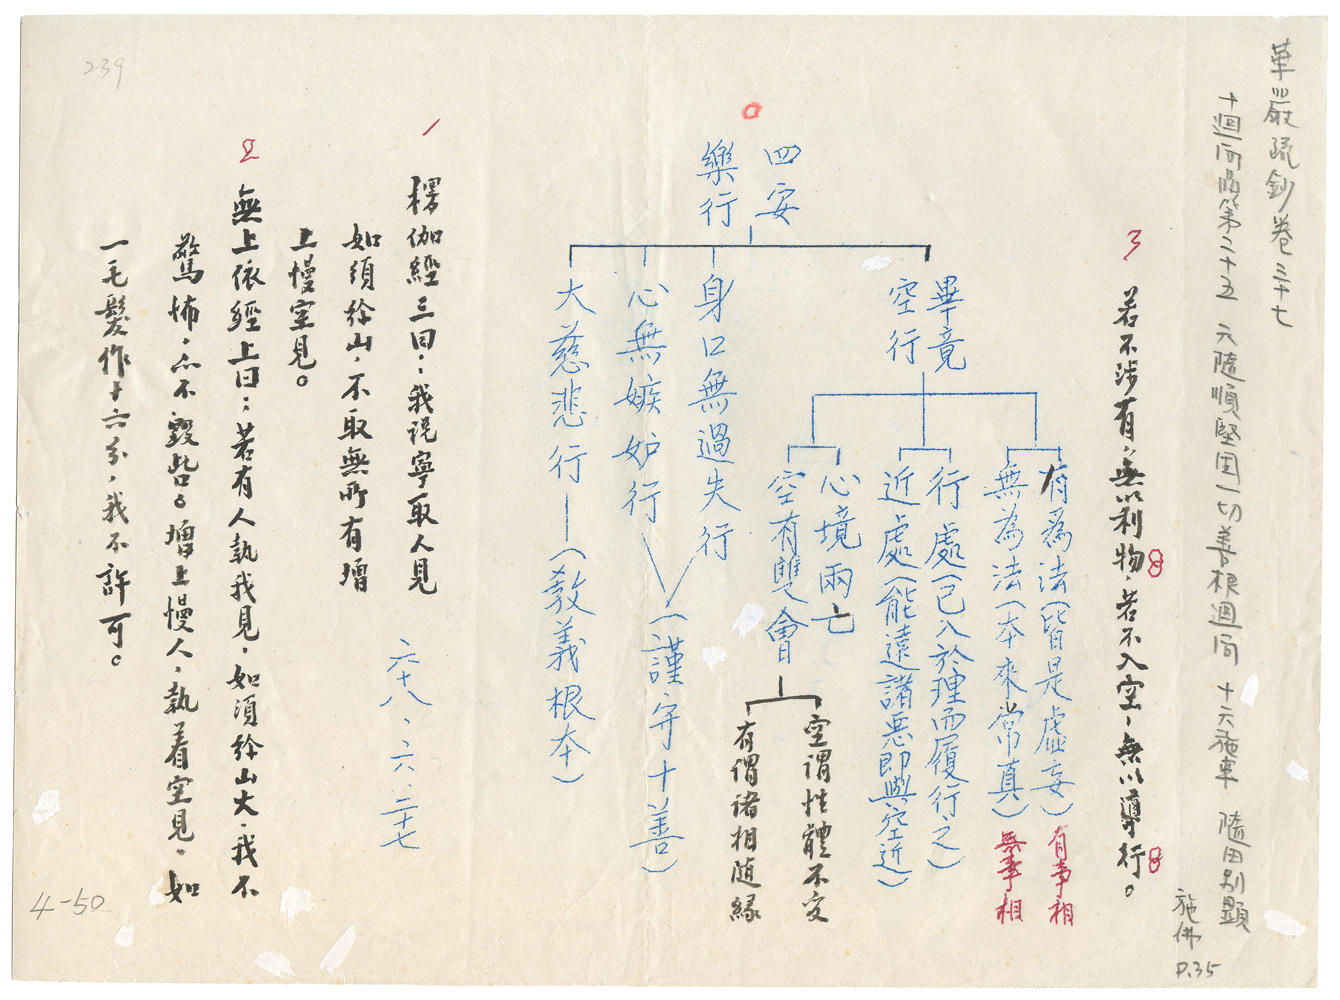 華嚴疏鈔卷三十七
十迴向品第二十五 六隨順堅固一切善根迴向 十六施車 隨田別顯
施佛
P.35
3
若不涉有，無以利物，若不入空，無以導行。
四安
樂行
畢竟
空行
身口無過失行
心無嫉妒行
大慈悲行—（教義根本）
（謹守十善）
有為法（皆是虛妄）有事相
無為法（本來常真）無事相
行處（已入於理而履行之）
近處（能遠諸惡即與空近）
心境兩亡
空有雙會
空謂性體不變
有謂諸相隨緣
1
楞伽經三曰：我說寧取人見
如須彌山，不取無所有增
上慢空見。
六十八、六、二十七
2
無上依經上曰：若有人執我見，如須彌山大，我不
驚怖，亦不毀呰。增上慢人，執着空見，如
一毛髮作十六分，我不許可。
239
4-50